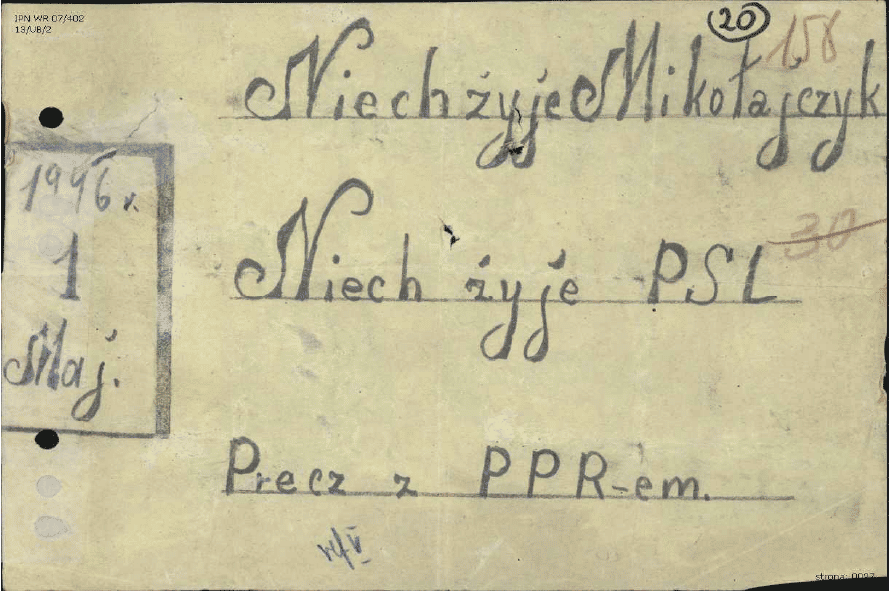 IPN WR 07/402
13/UB/2
20
158
Niech żyje Mikołajczyk
1946 r.
1
Maj.
30
Niech żyje PSL
Precz z PPR-em.
strona: 0027